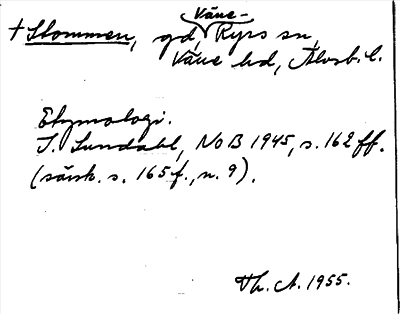 Väne-
+ Slommen, gd, Ryrs sn,
Väne hd, Älvsb. l.
Etymologi.
I. Lundahl, NoB 1945, s. 162 ff.
(särsk. s. 165 f., n. 9).
Th. A. 1955.